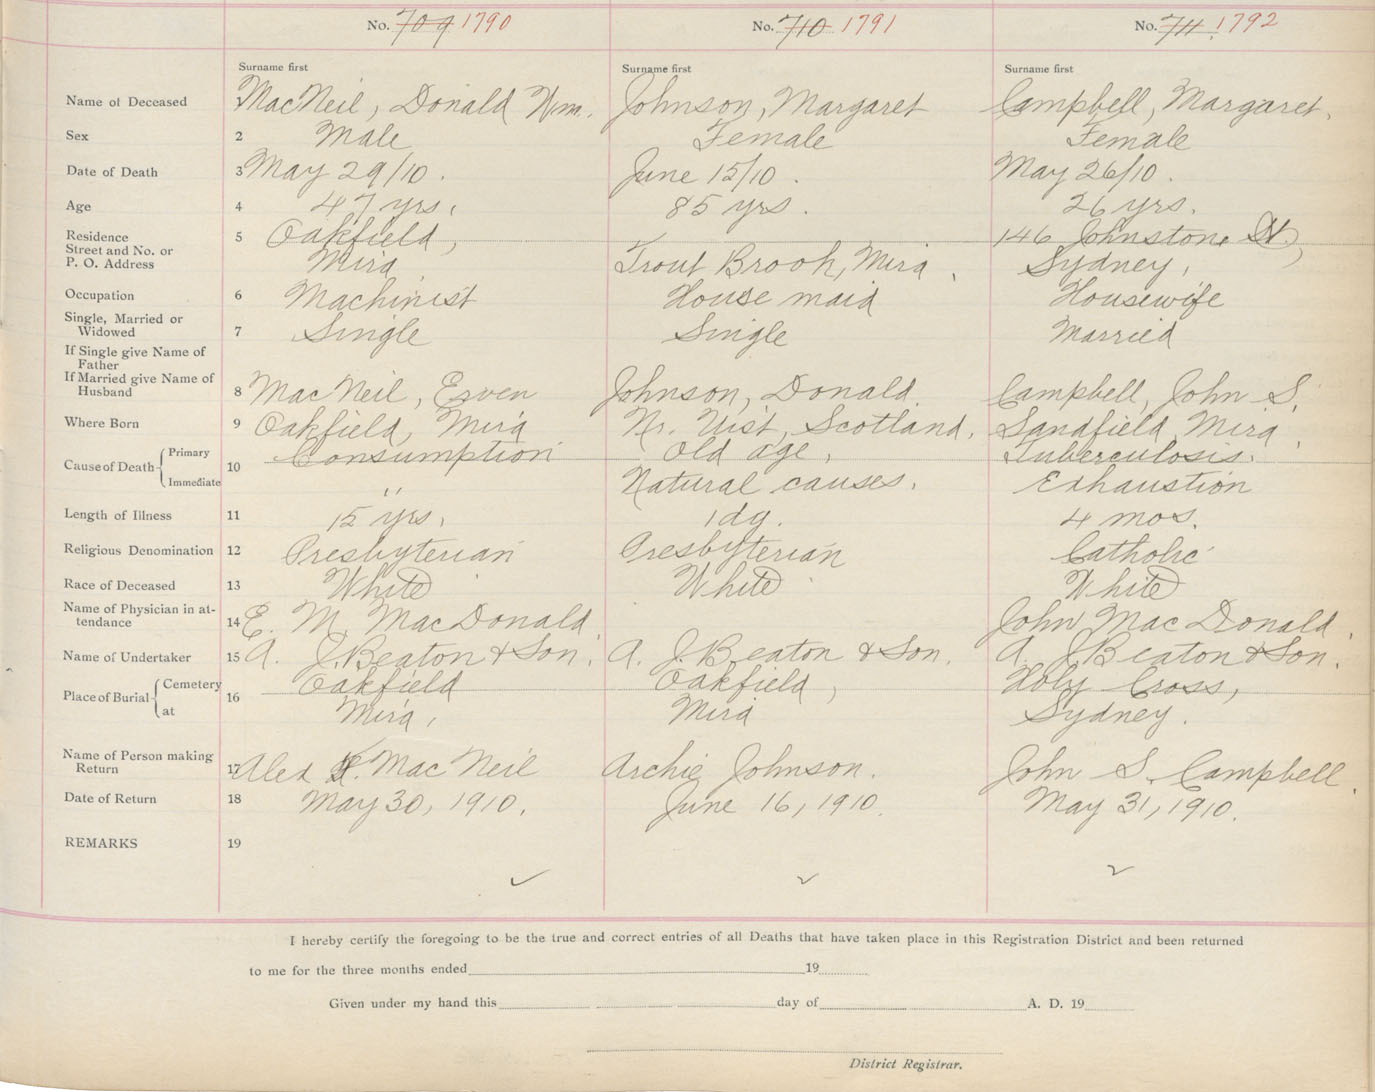 No. 709 1790 No. 710 1791 No. 711. 1792
Surname first Surname first Surname first
Name of Deceased 1 MacNeil, Donald Wm. Johnson, Margaret Campbell, Margaret.
Sex 2 Male Female Female
Date of Death 3 May 29/10. June 15/10. May 26/10.
Age 4 47 yrs. 85 yrs. 26 yrs.
Residence 5 Oakfield, 146 Johnstone St.,
Street and No. or
P. O. Address Mira, Trout Brook, Mira. Sydney.
Occupation 6 Machinist House maid Housewife
Single, Married or
Widowed 7 Single Single Married
If Single give Name of
Father
If Married give Name of
Husband 8 MacNeil, Erven Johnson, Donald Campbell, John S.
Where Born 9 Oakfield, Mira Nr. Uist, Scotland. Sandfield, Mira.
Cause of Death Primary 10 Consumption Old age, Tuberculosis.
Immediate " Natural causes. Exhaustion
Length of Illness 11 15 yrs. 1 dy. 4 mos.
Religious Denomination 12 Presbyterian Presbyterian Catholic
Race of Deceased 13 White White White
Name of Physician in at-
tendance 14 E. M. MacDonald. John MacDonald.
Name of Undertaker 15 A. J. Beaton & Son. A. J. Beaton & Son. A. J. Beaton & Son.
Place of Burial Cemetery 16 Oakfield Oakfield, Holy Cross,
at Mira, Mira Sydney.
Name of Person making
Return 17 Alex MacNeil Archie Johnson. John S. Campbell.
Date of Return 18 May 30, 1910. June 16, 1910. May 31, 1910.
REMARKS 19
I hereby certify the foregoing to be the true and correct entries of all Deaths that have taken place in this Registration District and been returned
to me for the three months ended 19
Given under my hand this day of A. D. 19
District Registrar.